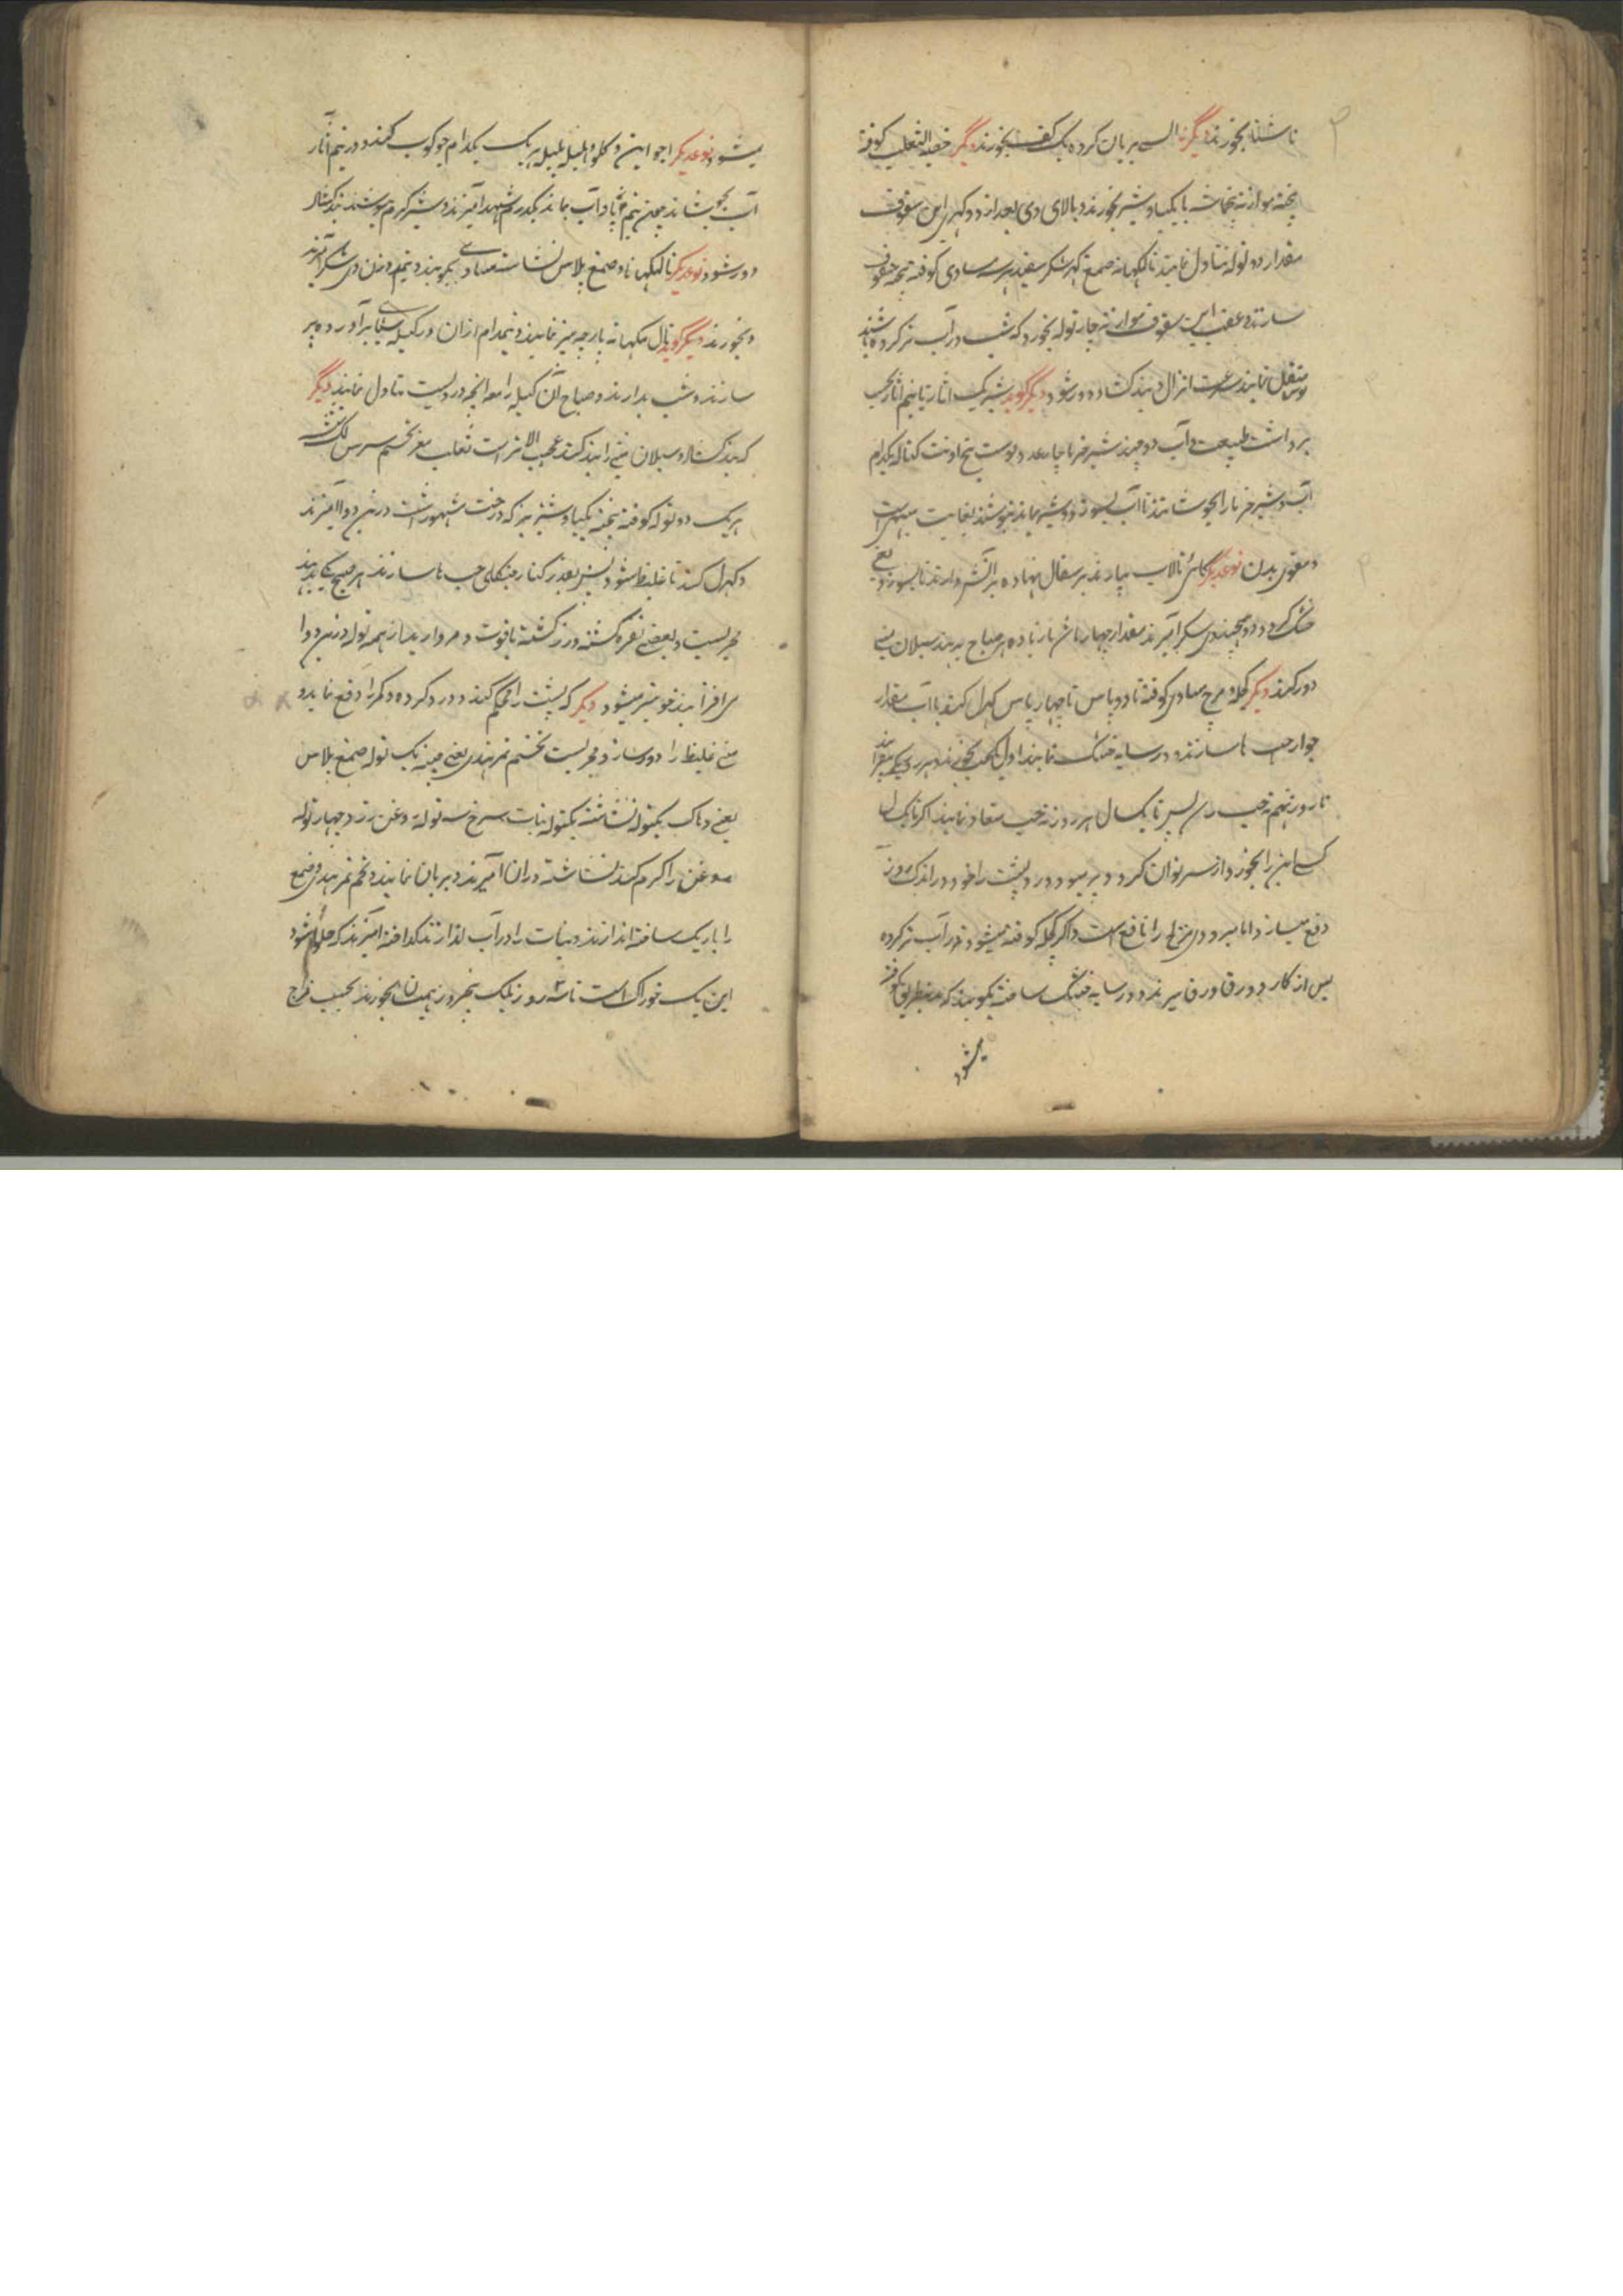 ناشتا بخورند دیگر نه السی بریان کرده یک کف بخورند دیگر خصیة الثعلب کوفته
پخته موازنه با یکپاو شیر بخورند و بالای وی بعد از دو گهری این سفوف
مقدار دو توله تناول نمایند تالمکهانه صمغ شکر سفید هر سه مساوی کوفته بیخته سفوف
سازند و عقب این سفوف موازنه چار توله بخود که شب در آب تر کرده باشند
نمایند سرعت انزال و بند کشاد دور شود دیگر گوید شیر یک اثار تا نیم اثار بحسب
برداشت طبیعت و آب دو چند شیر خرما چار عدد پوست بیخ اونت کتاله یکدام
آب و شیر خرما را بجوشانند تا آب بسوزد و شیر بماند بنوشند بغایت مبهی است
و مقوی بدن نوعدیگر کائی تالاب بیارند بر سفال نهاده بر آتش دارند تا بسوزد یعنی
خشک گردد و دو چند وی شکر آمیزند مقدار چهار ماش یا زیاده هر صباح بدهند سیلان منی
دور کند دیگر کچله و مرچ مساوی کوفته تا دو پاس تا چهار پاس کهرل کنند با آب مقدار
جوار حب ها سازند و در سایه خشک نمایند اول یک حب بخورند هر روز یکی بیفزایند
تا روز نهم نه حب پس تا یکسال هر روز نه حب معتاد نمایند اگر تا یکسال
کسی این را بخورد از سر نو جوان گردد و پیر نمیشود و درد پشت را خود در اندک روز
دفع میسازد اما سرد و مزاج را نافع است و اگر کچله کوفته نمیشود در آب تر کرده
پس از کارد ورقا ورقا ببرند و در سایه خشک ساخته بکوبند که بدینطریق کوفته
میشود
میشود نوعدیگر اجواین و گلو و هلیله بلیله هر یک یکدام جوکوب کنند و در نیم آثار
آب بجوشانند چون نیم پاو آب بماند یکدرم شهد آمیزند و شیر گرم بنوشند بند کشاد
دور شود نوعدیگر تالمکهانا و صمغ پلاس نشاسته مساوی بکوبند و نیم وزن وی شکر آمیزند
و بخورند دیگر گوید تال مکهانه پارچه بیز نمایند و نیمدام ازان در کیله برآورده پر
سازند و شب بدارند و صباح آن کیله را معه آنچه در ویست تناول نمایند دیگر
که بند کشاد و سیلان منی را بند کند عجیب الاثر است ثعلب مغز تخم سرس
هر یک دو توله کوفته بیخته یکپاو شیر بر که درخت مشهور است درین دوا آمیزند
و کهرل کنند تا غلیظ شود پس بقدر کنار جنگلی حب ها سازند هر صبح یکی بدهند
مجربست و بعضی نقره کشته و زر کشته یاقوت و مروارید از همه توله درین دوا
می افزایند خوبتر میشود دیگر که پشت را محکم کند و درد گرده و کمر را دفع نماید و
منی غلیظ را دور سازد مجربست تخم تمر هندی یعنی چینه یک توله صمغ پلاس
یعنی دهاک یکتوله نشاسته یکتوله نبات سرخ سه توله روغن زرد چهار توله
روغن را گرم کنند نشاسته دران آمیزند و بریان نمایند و تخم تمر هندی و صمغ
را باریک ساخته اندازند و نبات را در آب گداخته آمیزند که حلوا شود
این یک خوراک است تا روز نمک نخورد همین بخورند بحسب مزاج